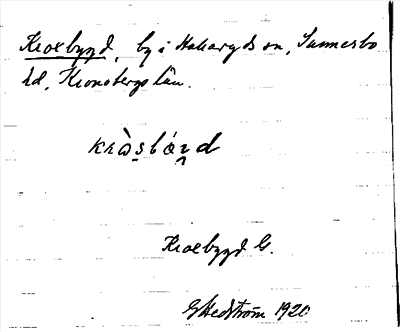 Kroxbygd, by i Hakaryds sn, Sunnerbo
hd, Kronobergs län.
Kroxbygd G.
G Hedström 1920